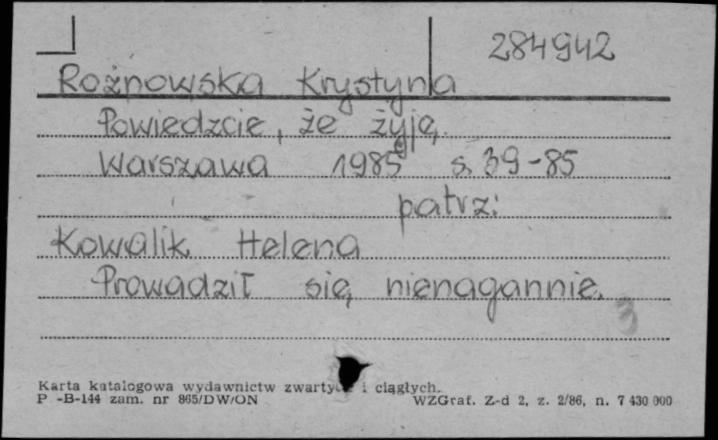 284942
Rożnowska Krystyna
Powiedzcie, że żyję.
Warszawa 1985 s. 39-85
patrz:
Kowalik Helena
Prowadził się nienagannie.
3
Karta katalogowa wydawnictw i ciągłych.
P -B-144 zam. nr 865/DW/ON WZGraf. Z-d 2, z. 2/86, n. 7 430 000